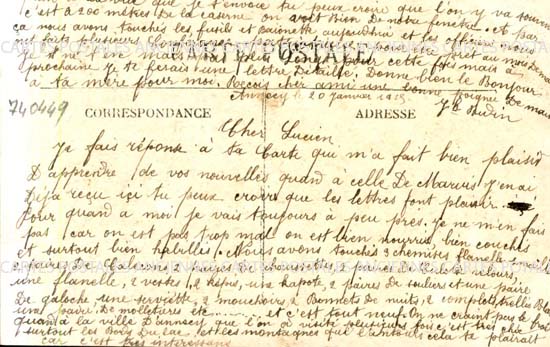 que je t'envoie tu peux croire que l'on y va souven
c'est à 200 mètres De la caserne on voit Bien De notre fenêtre. A par
ça nous avons touchés les fusils et Baionette aujourdhui et les officiers
prochaine je te ferais une lettre Détaillé. Donne bien le Bonjour
à ta mère pour moi. Reçois cher ami une bonne poignée De main
Annecy le 20 Janvier 1915
740449
CORRESPONDANCE
ADRESSE
Cher Lucien
Je fais réponse à ta Carte qui m'a fait bien plaisir
D'apprendre de vos nouvelles quand à celle De Marius j'en ai
Déjà reçu ici tu peux croire que les lettres font plaisir.
Pour quand a moi je vais toujours à peu près. Je ne m'en fais
pas car on est pas trop mal on est bien nourris bien couchés
et surtout bien habillés. Nous avons touchés 3 chemises flanelle
2 paires De Caleçons, 2 paires De chaussettes
une flanelle, 2 vestes, 2 Képis, une Capote, 2 paires De souliers et une paire
De galoche, une serviette, 2 mouchoirs, 2 Bonnets de nuits, 2 complet treillis
une paire De molletières etc. et c'est tout neuf. On ne craint pas le froid
quand à la ville D'annecy que l'on a visité plusieurs fois c'est très chic
surtout les Bords Du Lac et les montagnes que l'entoure cela te plairait
car c'est très interessant